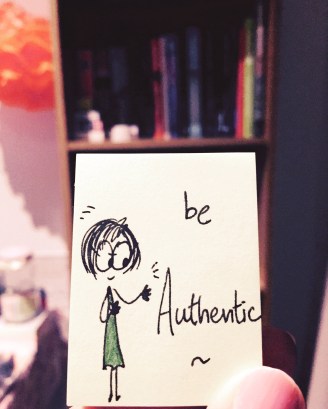 be
Authentic
~